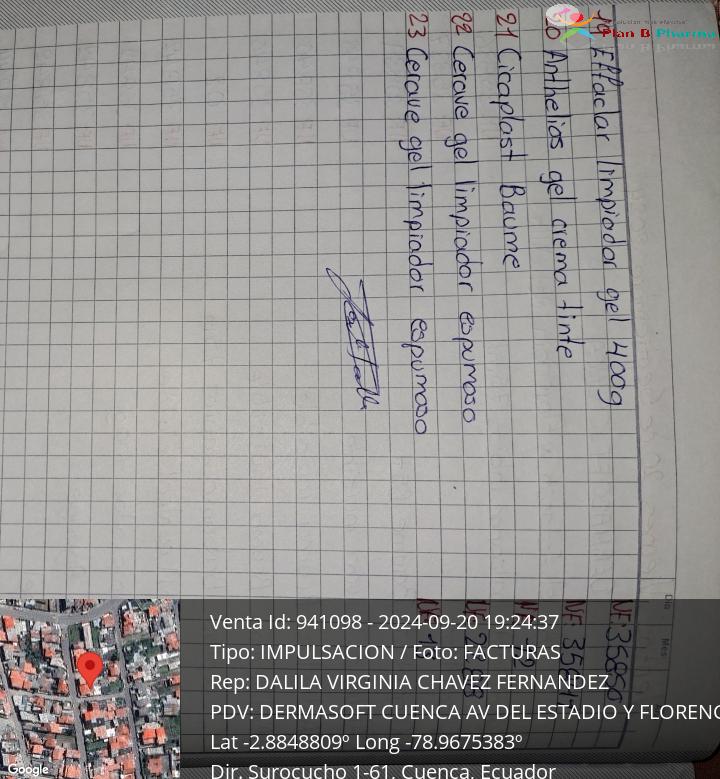 Plan B Pharma
19 Effaclar limpiador gel 400g
20 Anthelios gel crema tinte
21 Cicaplast Baume
22 Cerave gel limpiador espumoso
23 Cerave gel limpiador espumoso
Día Mes
Venta Id: 941098 - 2024-09-20 19:24:37
Tipo: IMPULSACION / Foto: FACTURAS
Rep: DALILA VIRGINIA CHAVEZ FERNANDEZ
PDV: DERMASOFT CUENCA AV DEL ESTADIO Y FLORENC
Lat -2.8848809º Long -78.9675383º
Dir. Surocucho 1-61, Cuenca, Ecuador
Google